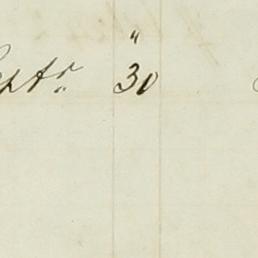 "
Septr 30